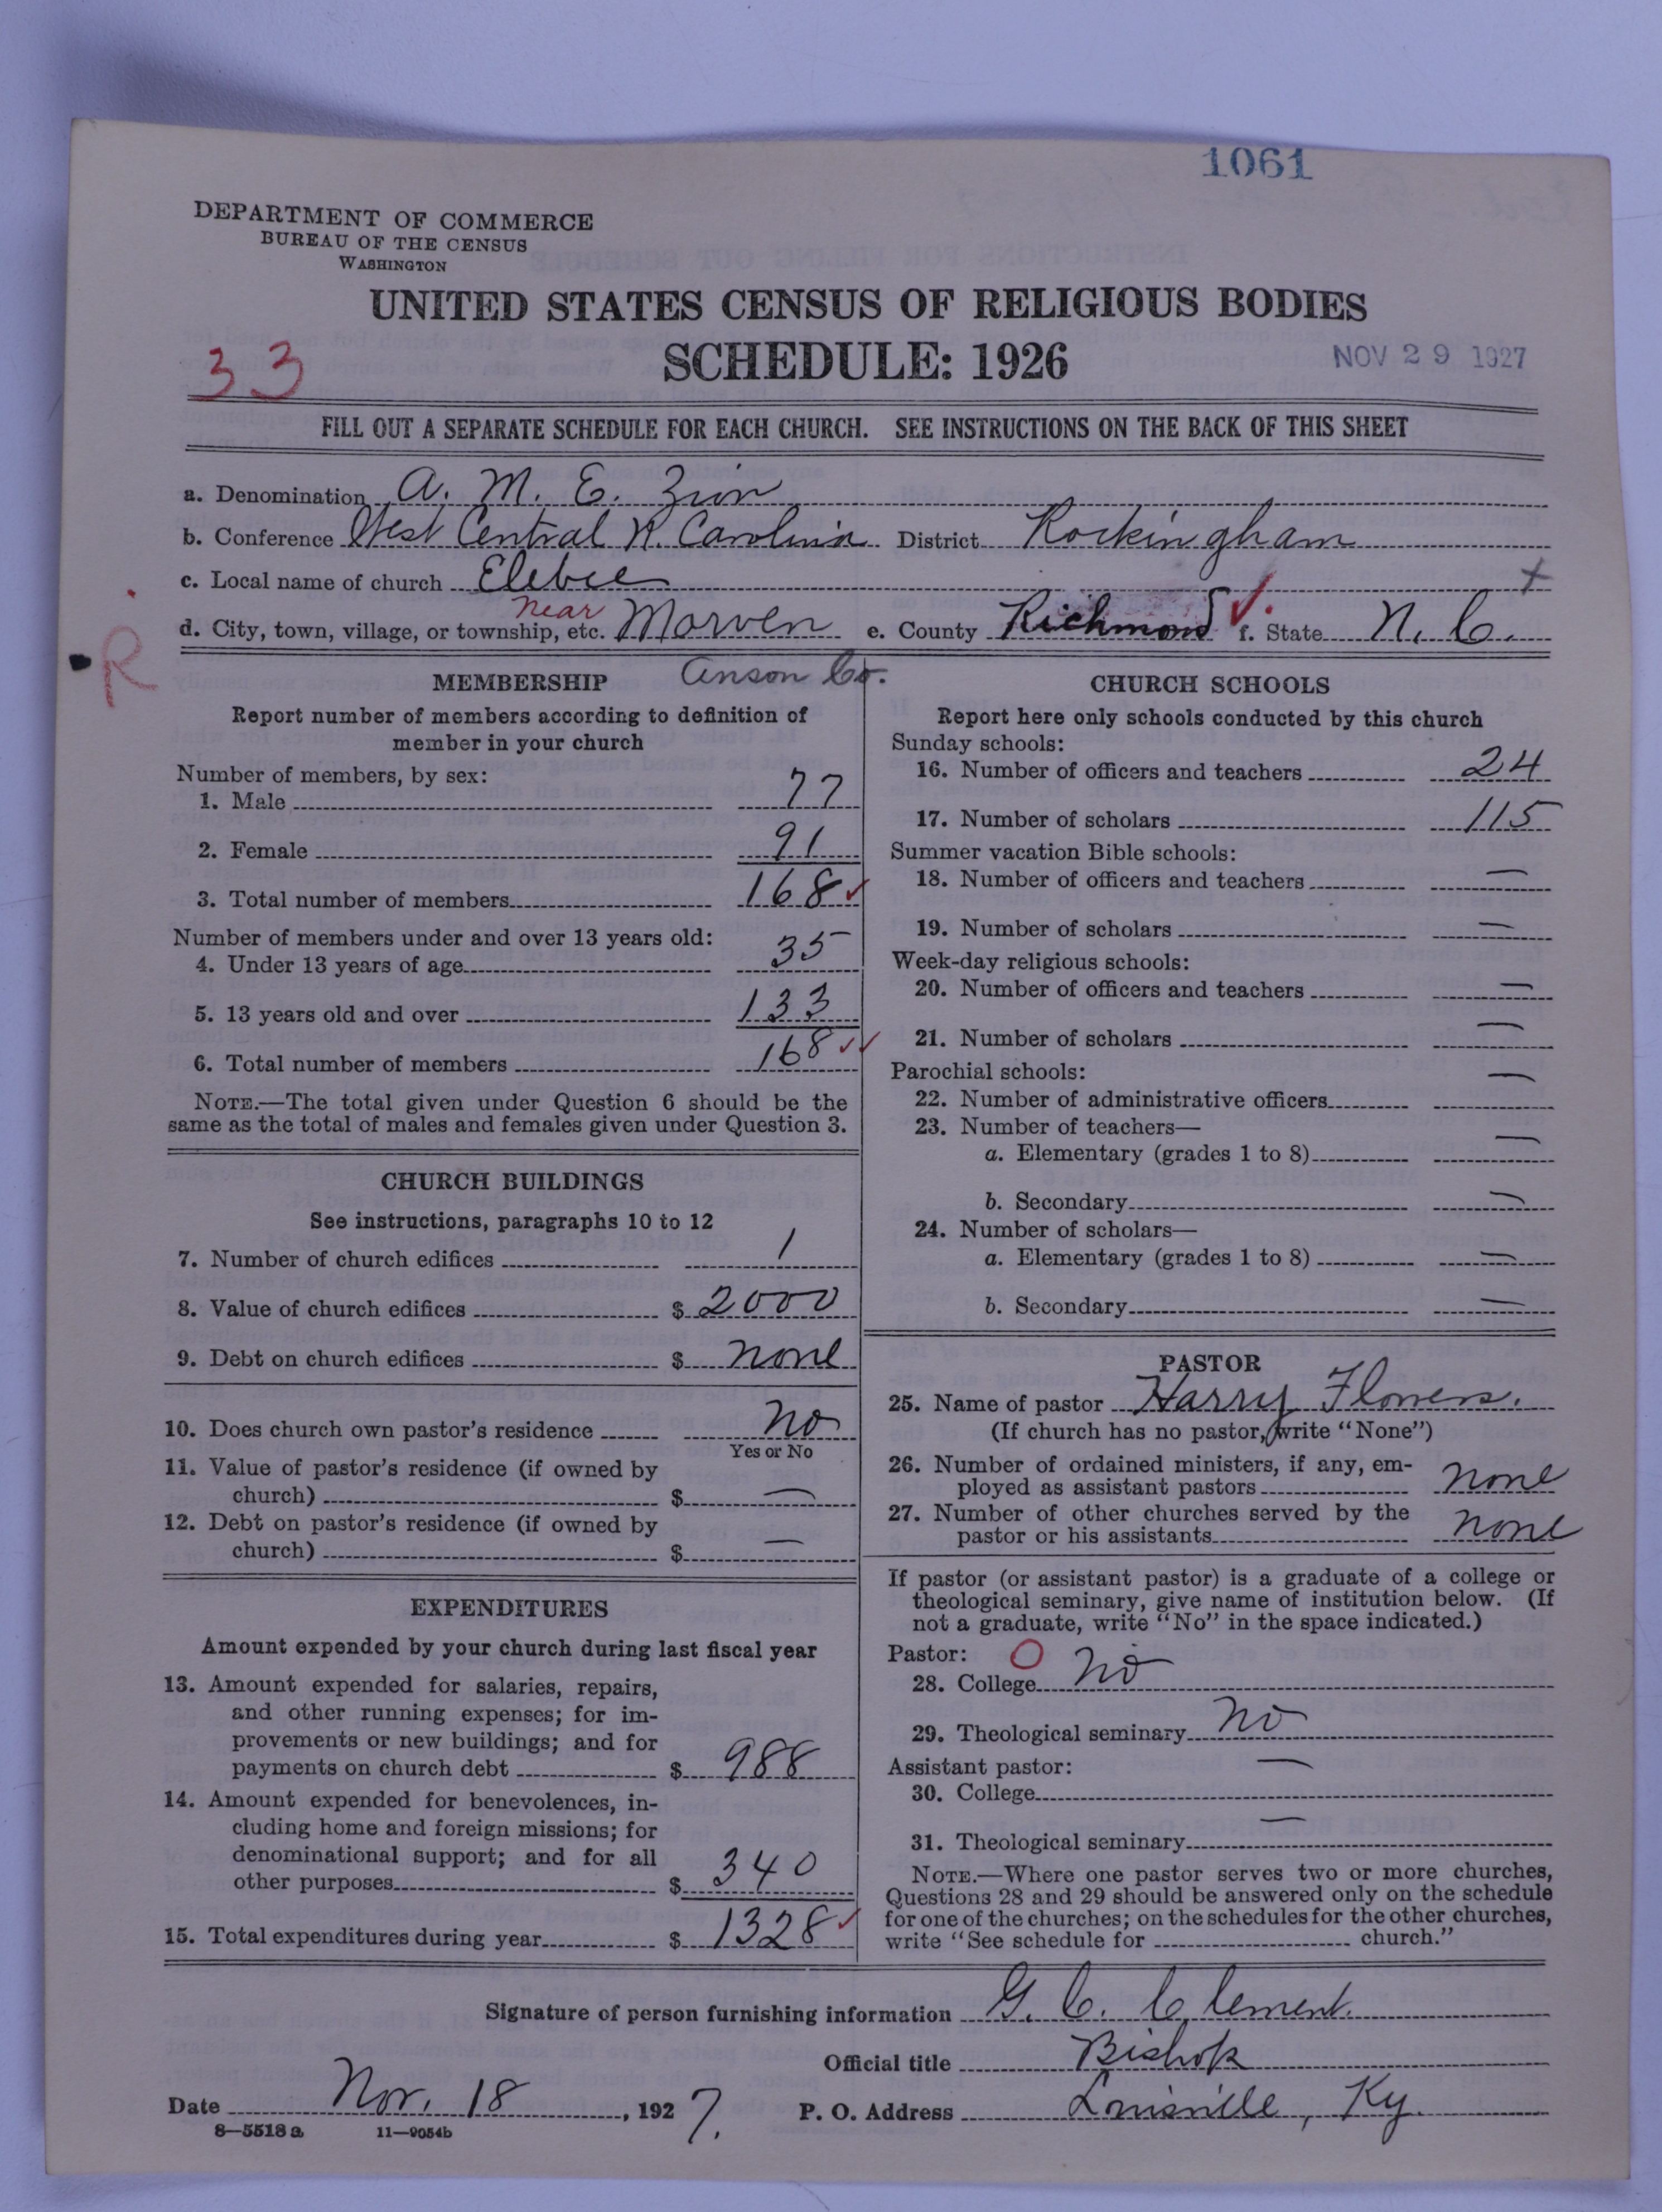 1061
DEPARTMENT OF COMMERCE
BUREAU OF THE CENSUS
WASHINGTON
UNITED STATES CENSUS OF RELIGIOUS BODIES
33
SCHEDULE: 1926
NOV 29 1927
FILL OUT A SEPARATE SCHEDULE FOR EACH CHURCH. SEE INSTRUCTIONS ON THE BACK OF THIS SHEET
a. Denomination A. M. E. Zion
b. Conference West Central N. Carolina District Rockingham
c. Local name of church Elebee
d. City, town, village, or township, etc. near Morven e. County Richmond ✓. f. State N. C.
R
Anson Co.
MEMBERSHIP
Report number of members according to definition of
member in your church
Number of members, by sex:
1. Male 77
2. Female 91
3. Total number of members 168 ✓
Number of members under and over 13 years old:
4. Under 13 years of age 35
5. 13 years old and over 133
6. Total number of members 168 ✓✓
NOTE.—The total given under Question 6 should be the
same as the total of males and females given under Question 3.
CHURCH BUILDINGS
See instructions, paragraphs 10 to 12
7. Number of church edifices 1
8. Value of church edifices $ 2000
9. Debt on church edifices $ none
10. Does church own pastor's residence no
Yes or No
11. Value of pastor's residence (if owned by
church) $ —
12. Debt on pastor's residence (if owned by
church) $ —
EXPENDITURES
Amount expended by your church during last fiscal year
13. Amount expended for salaries, repairs,
and other running expenses; for im-
provements or new buildings; and for
payments on church debt $ 988
14. Amount expended for benevolences, in-
cluding home and foreign missions; for
denominational support; and for all
other purposes $ 340
15. Total expenditures during year $ 1328 ✓
CHURCH SCHOOLS
Report here only schools conducted by this church
Sunday schools:
16. Number of officers and teachers 24
17. Number of scholars 115
Summer vacation Bible schools:
18. Number of officers and teachers —
19. Number of scholars —
Week-day religious schools:
20. Number of officers and teachers —
21. Number of scholars —
Parochial schools:
22. Number of administrative officers —
23. Number of teachers—
a. Elementary (grades 1 to 8) —
b. Secondary —
24. Number of scholars—
a. Elementary (grades 1 to 8) —
b. Secondary —
PASTOR
25. Name of pastor Harry Flowers.
(If church has no pastor, write "None")
26. Number of ordained ministers, if any, em-
ployed as assistant pastors none
27. Number of other churches served by the
pastor or his assistants none
If pastor (or assistant pastor) is a graduate of a college or
theological seminary, give name of institution below. (If
not a graduate, write "No" in the space indicated.)
Pastor: O
28. College no
29. Theological seminary no
Assistant pastor: —
30. College
31. Theological seminary —
NOTE.—Where one pastor serves two or more churches,
Questions 28 and 29 should be answered only on the schedule
for one of the churches; on the schedules for the other churches,
write "See schedule for church."
Signature of person furnishing information G. C. Clement.
Official title Bishop
Date Nov. 18, 1927. P. O. Address Louisville, Ky.
8—5518a 11—9054b